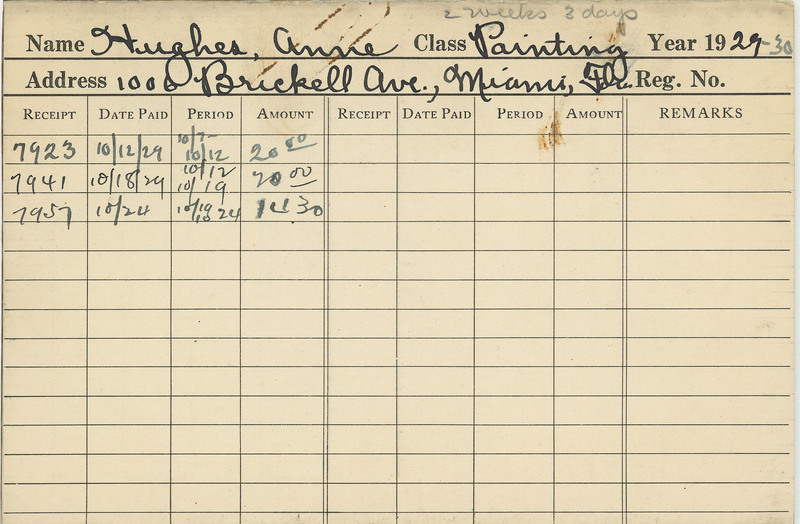 2 weeks 3 days
Name Hughes, Anne Class Painting Year 1929-30
Address 1006 Brickell Ave., Miami, Fla. Reg. No.
RECEIPT DATE PAID PERIOD AMOUNT RECEIPT DATE PAID PERIOD AMOUNT REMARKS
7923 10/12/29 10/7- 10/12 20 00
7941 10/18/29 10/12 10/19 20 00
7957 10/24 10/19 10/24 14 30